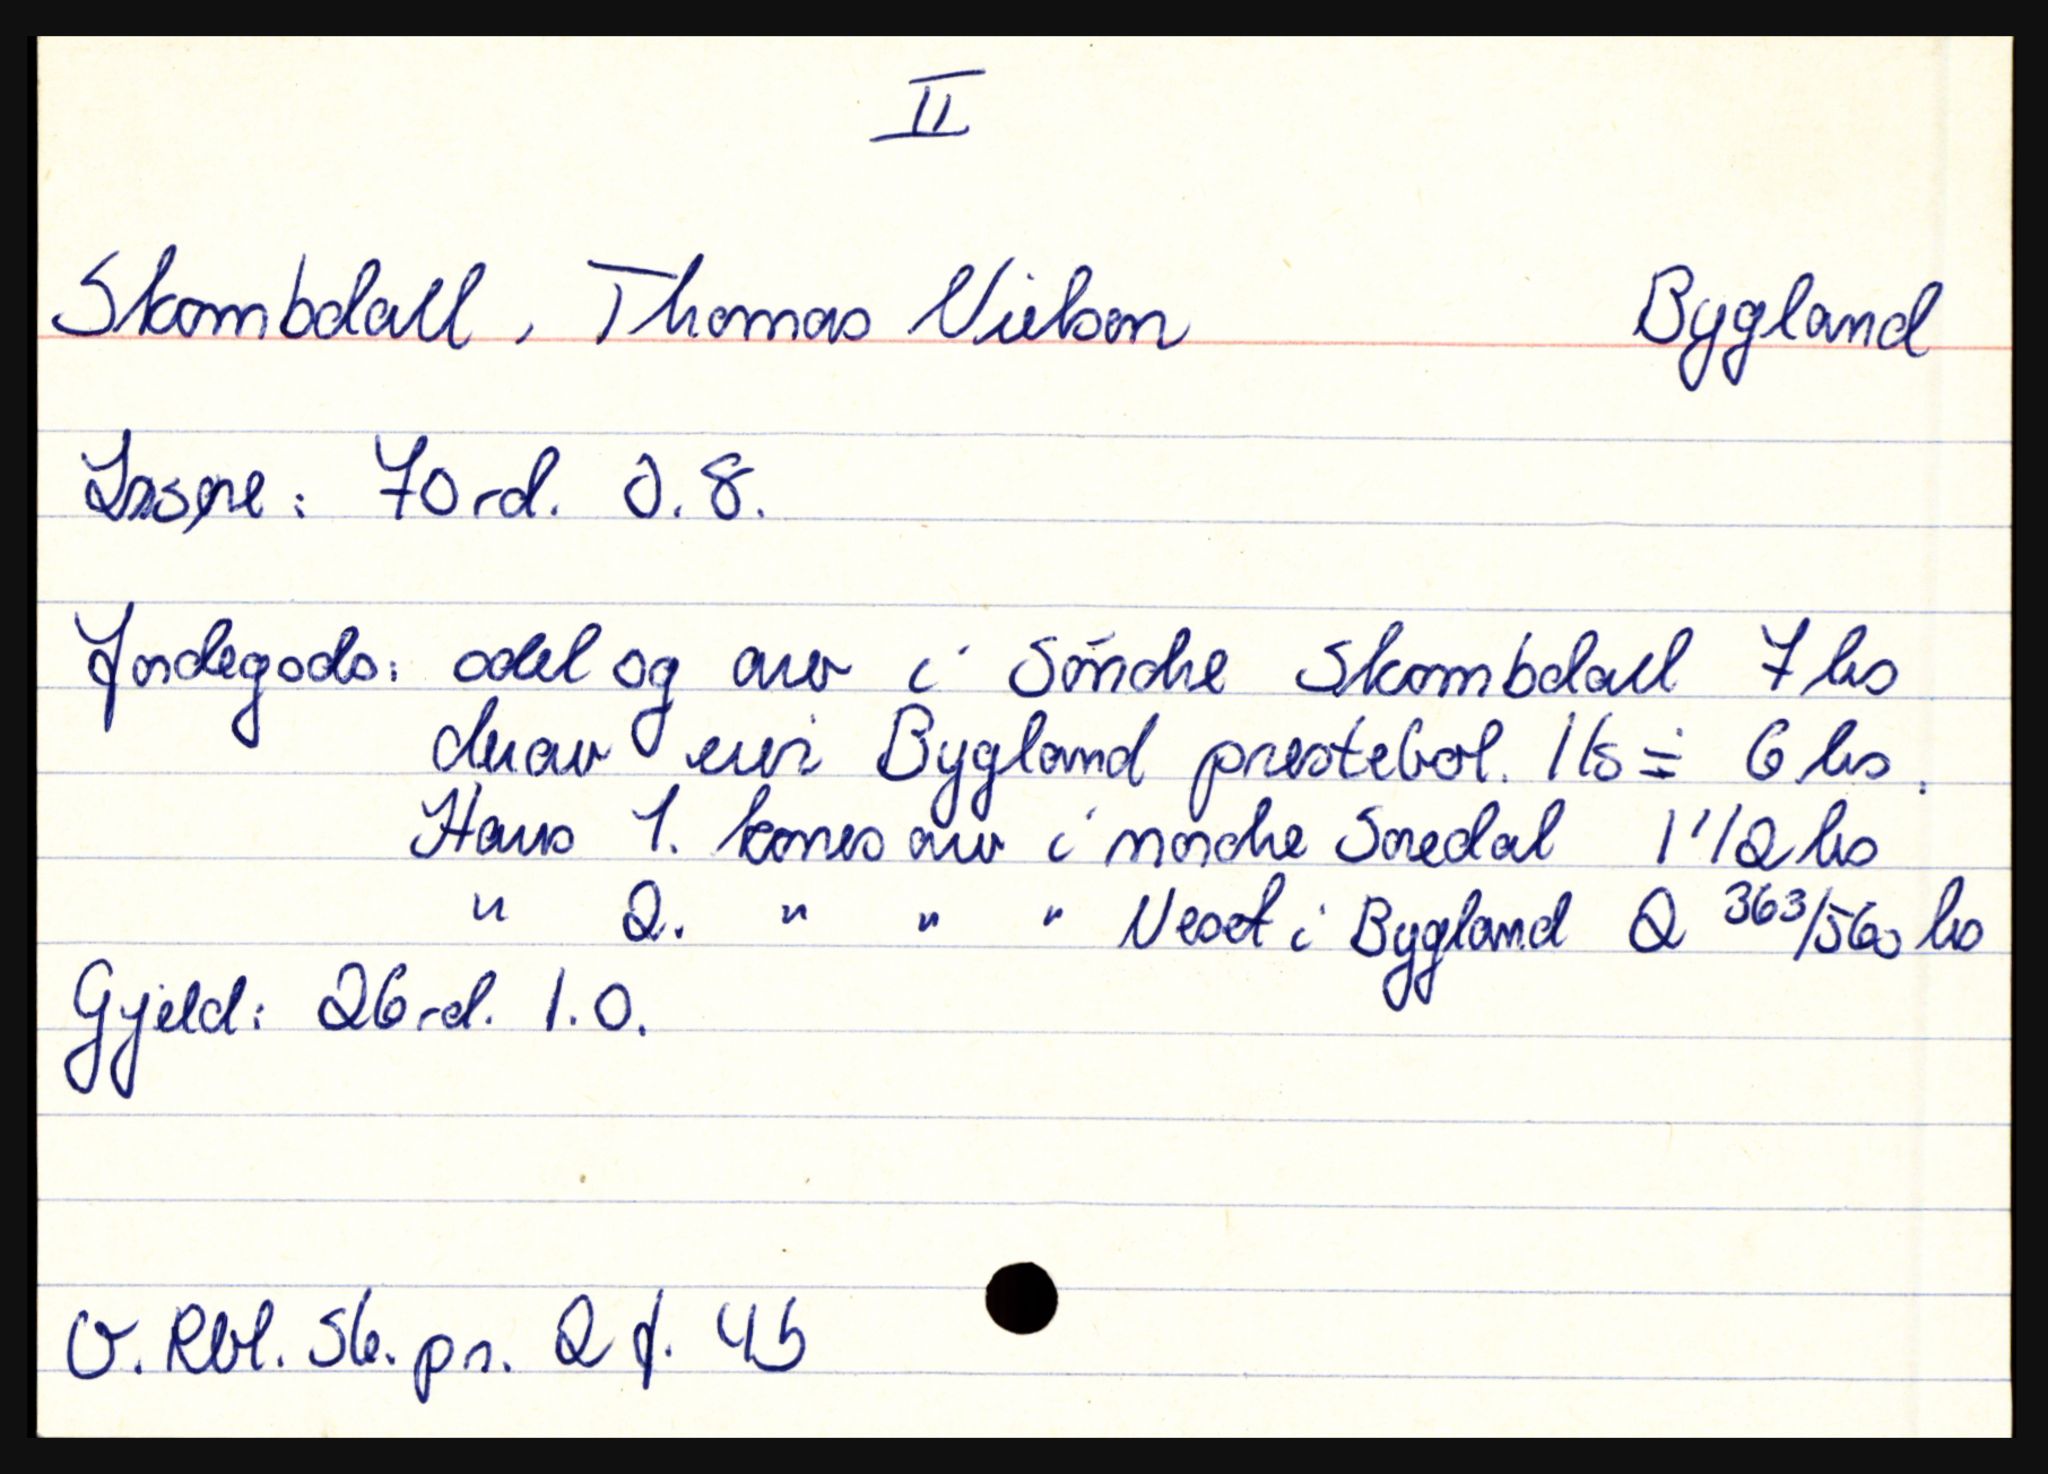 II
Skombdall, Thomas Nielson Bygland
Løsøre: 70 rd. 0.8.
Jordegods: odel og arv i Söndre Skombdall 7 hs
derav Bygland prestebol. 1 ls = 6 hs.
Hans 1. kones arv i nordre Soredal 1 1/2 hs
" 2. " " " Neset i Bygland 2 363/560 hs
Gjeld: 26 rd. 1.0.
V. Rbl. Sk. pr. 2 f. 4b